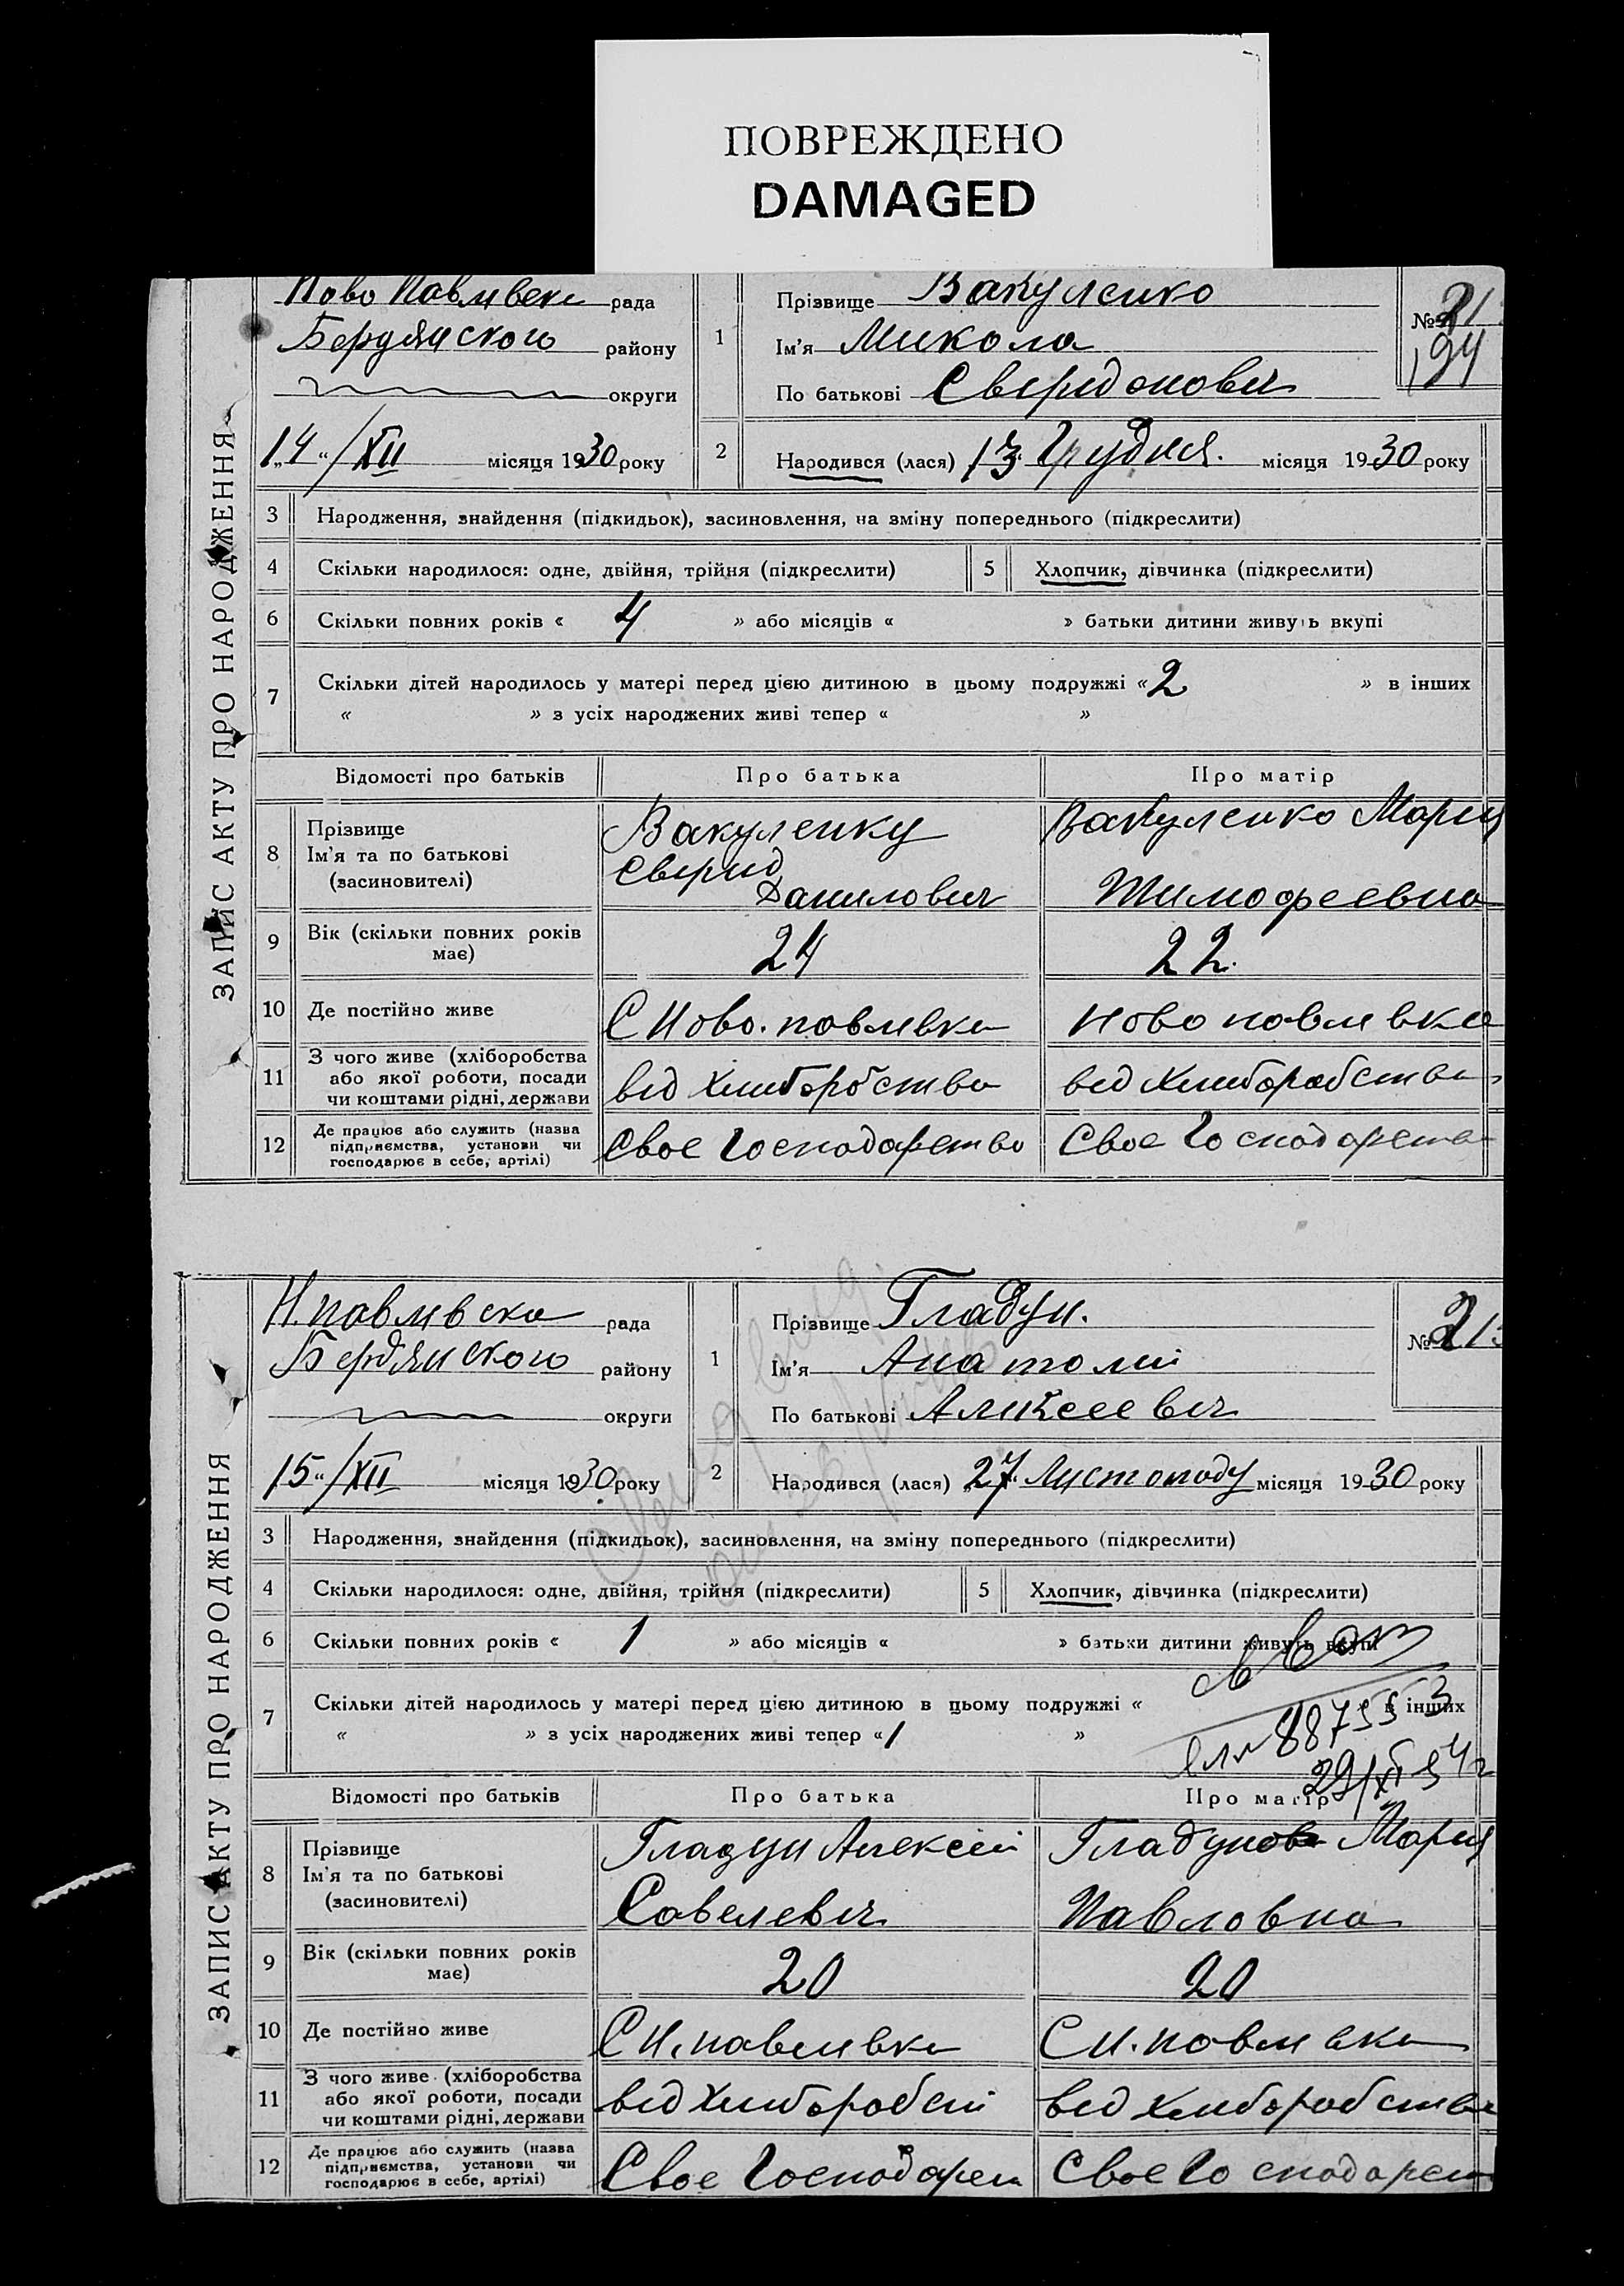 ПОВРЕЖДЕНО
DAMAGED
ЗАПИС АКТУ ПРО НАРОДЖЕННЯ
Ново Павливска рада
Бердянского району
округи
„14“/XII місяця 1930 року
1
Прізвище Вакуленко
Ім'я Микола
По батькові Сверидонович
№ 21
194
2
Народився (лася) 13 Грудня. місяця 1930 року
3 Народження, знайдення (підкидьок), засиновлення, на зміну попереднього (підкреслити)
4 Скільки народилося: одне, двійня, трійня (підкреслити) 5 Хлопчик, дівчинка (підкреслити)
6 Скільки повних років « 4 » або місяців « » батьки дитини живуть вкупі
7 Скільки дітей народилось у матері перед цією дитиною в цьому подружжі « 2 » в інших
« » з усіх народжених живі тепер « »
Відомості про батьків Про батька Про матір
8 Прізвище
Ім'я та по батькові
(засиновителі)
Вакуленку
Сверид
Данилович
Вакуленко Мария
Тимофеевна
9 Вік (скільки повних років
має)
24 22.
10 Де постійно живе С Ново.павливка Ново павливка
11 З чого живе (хліборобства
або якої роботи, посади
чи коштами рідні, держави
від Хлиборобства від хлиборобства
12 Де працює або служить (назва
підприємства, установи чи
господарює в себе, артілі)
Свое Господарство Свое Господарства
ЗАПИС АКТУ ПРО НАРОДЖЕННЯ
Н.павливска рада
Бердянского району
округи
„15“/XII місяця 1930 року
1
Прізвище Гладун.
Ім'я Анатолий
По батькові Аликсеевич
№ 21
2
Народився (лася) 27 Листопаду місяця 1930 року
3 Народження, знайдення (підкидьок), засиновлення, на зміну попереднього (підкреслити)
4 Скільки народилося: одне, двійня, трійня (підкреслити) 5 Хлопчик, дівчинка (підкреслити)
6 Скільки повних років « 1 » або місяців « » батьки дитини живуть вкупі
7 Скільки дітей народилось у матері перед цією дитиною в цьому подружжі « » в інших
« » з усіх народжених живі тепер « 1 »
29/XI 54г
Відомості про батьків Про батька Про матір
8 Прізвище
Ім'я та по батькові
(засиновителі)
Гладун Алексей
Савелевич
Гладунова Мария
Павловна
9 Вік (скільки повних років
має)
20 20
10 Де постійно живе С Н.павливка С Н.павливка
11 З чого живе (хліборобства
або якої роботи, посади
чи коштами рідні, держави
від Хлиборобст від хлиборобства
12 Де працює або служить (назва
підприємства, установи чи
господарює в себе, артілі)
Свое Господарст Свое Господарст